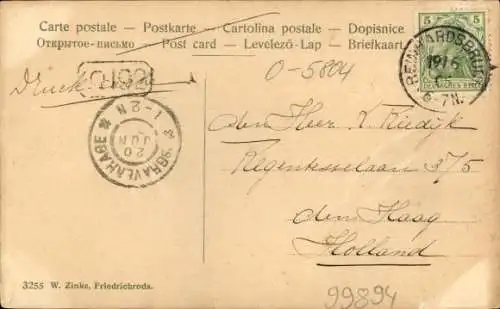 Carte postale – Postkarte – Cartolina postale – Dopisnice
Открытое-письмо – Post card – Levelező-Lap – Briefkaart
5 5
DEUTSCHES REICH
REINHARDSBRUNN
19/6
6-7N.
Druck
O-5804
1-2N
20
JUN
'SGRAVENHAGE
den Heer
Regentesselaan 375
den Haag
Holland
3255 W. Zinke, Friedrichroda.
99894